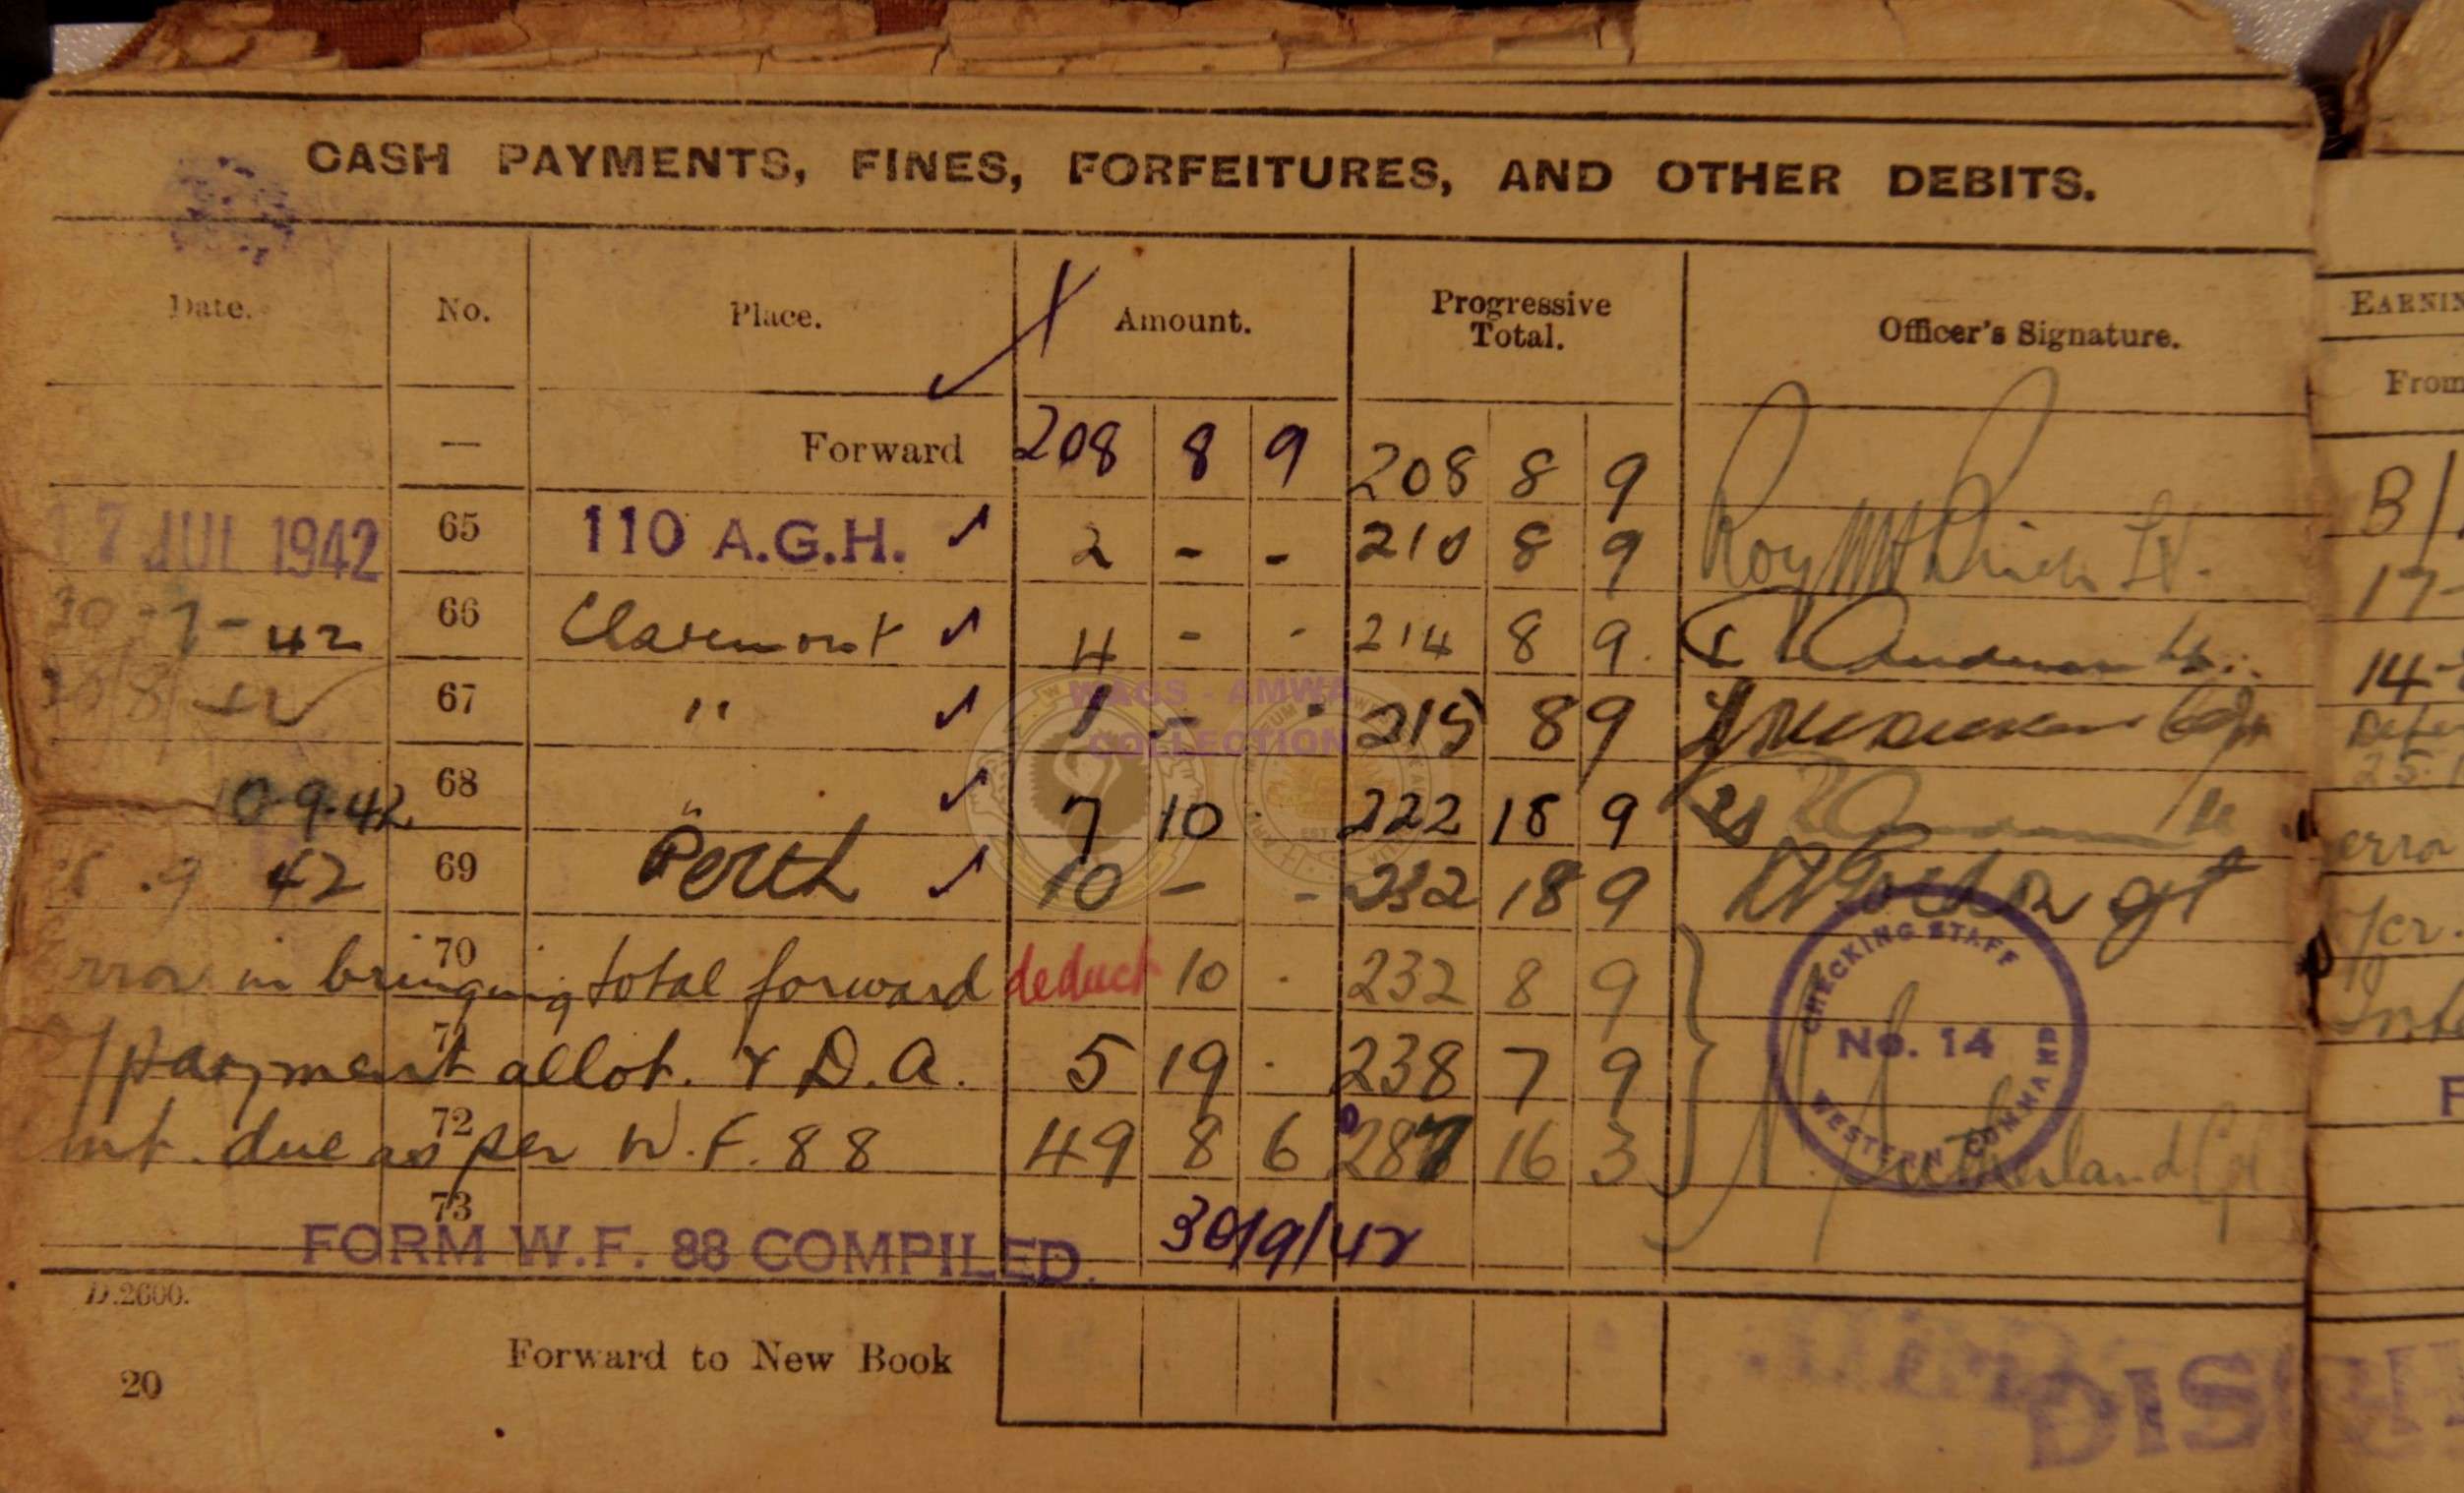 CASH PAYMENTS, FINES, FORFEITURES, AND OTHER DEBITS.
Date. No. Place. Amount. Progressive Total. Officer's Signature.
— Forward 208 8 9 208 8 9
17 JUL 1942 65 110 A.G.H. 2 - - 210 8 9 Lt.
30-7-42 66 Claremont 4 - - 214 8 9
8 42 67 " 1 - - 215 8 9
10.9.42 68 " 7 10 222 18 9
.9 42 69 Perth 10 - - 232 18 9
70 in bringing total forward deduct 10 . 232 8 9
71 payment allot. & D.A. 5 19 . 238 7 9
72 due as per W.F. 88 49 8 6 287 16 3 Sutherland Cpl
73
FORM W.F. 88 COMPILED. 30/9/42
CHECKING STAFF
No. 14
WESTERN COMMAND
WAGS - AMWA
COLLECTION
D.2600.
Forward to New Book
20
EARNIN
From
B/
17-
14-
erro